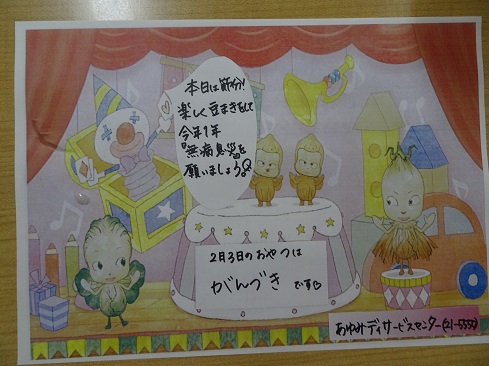 本日は節分!
楽しく豆まきをして
今年1年
『無病息災』を
願いましょう。
2月3日のおやつは
がんづき です
あゆみデイサービスセンター(21-5550)